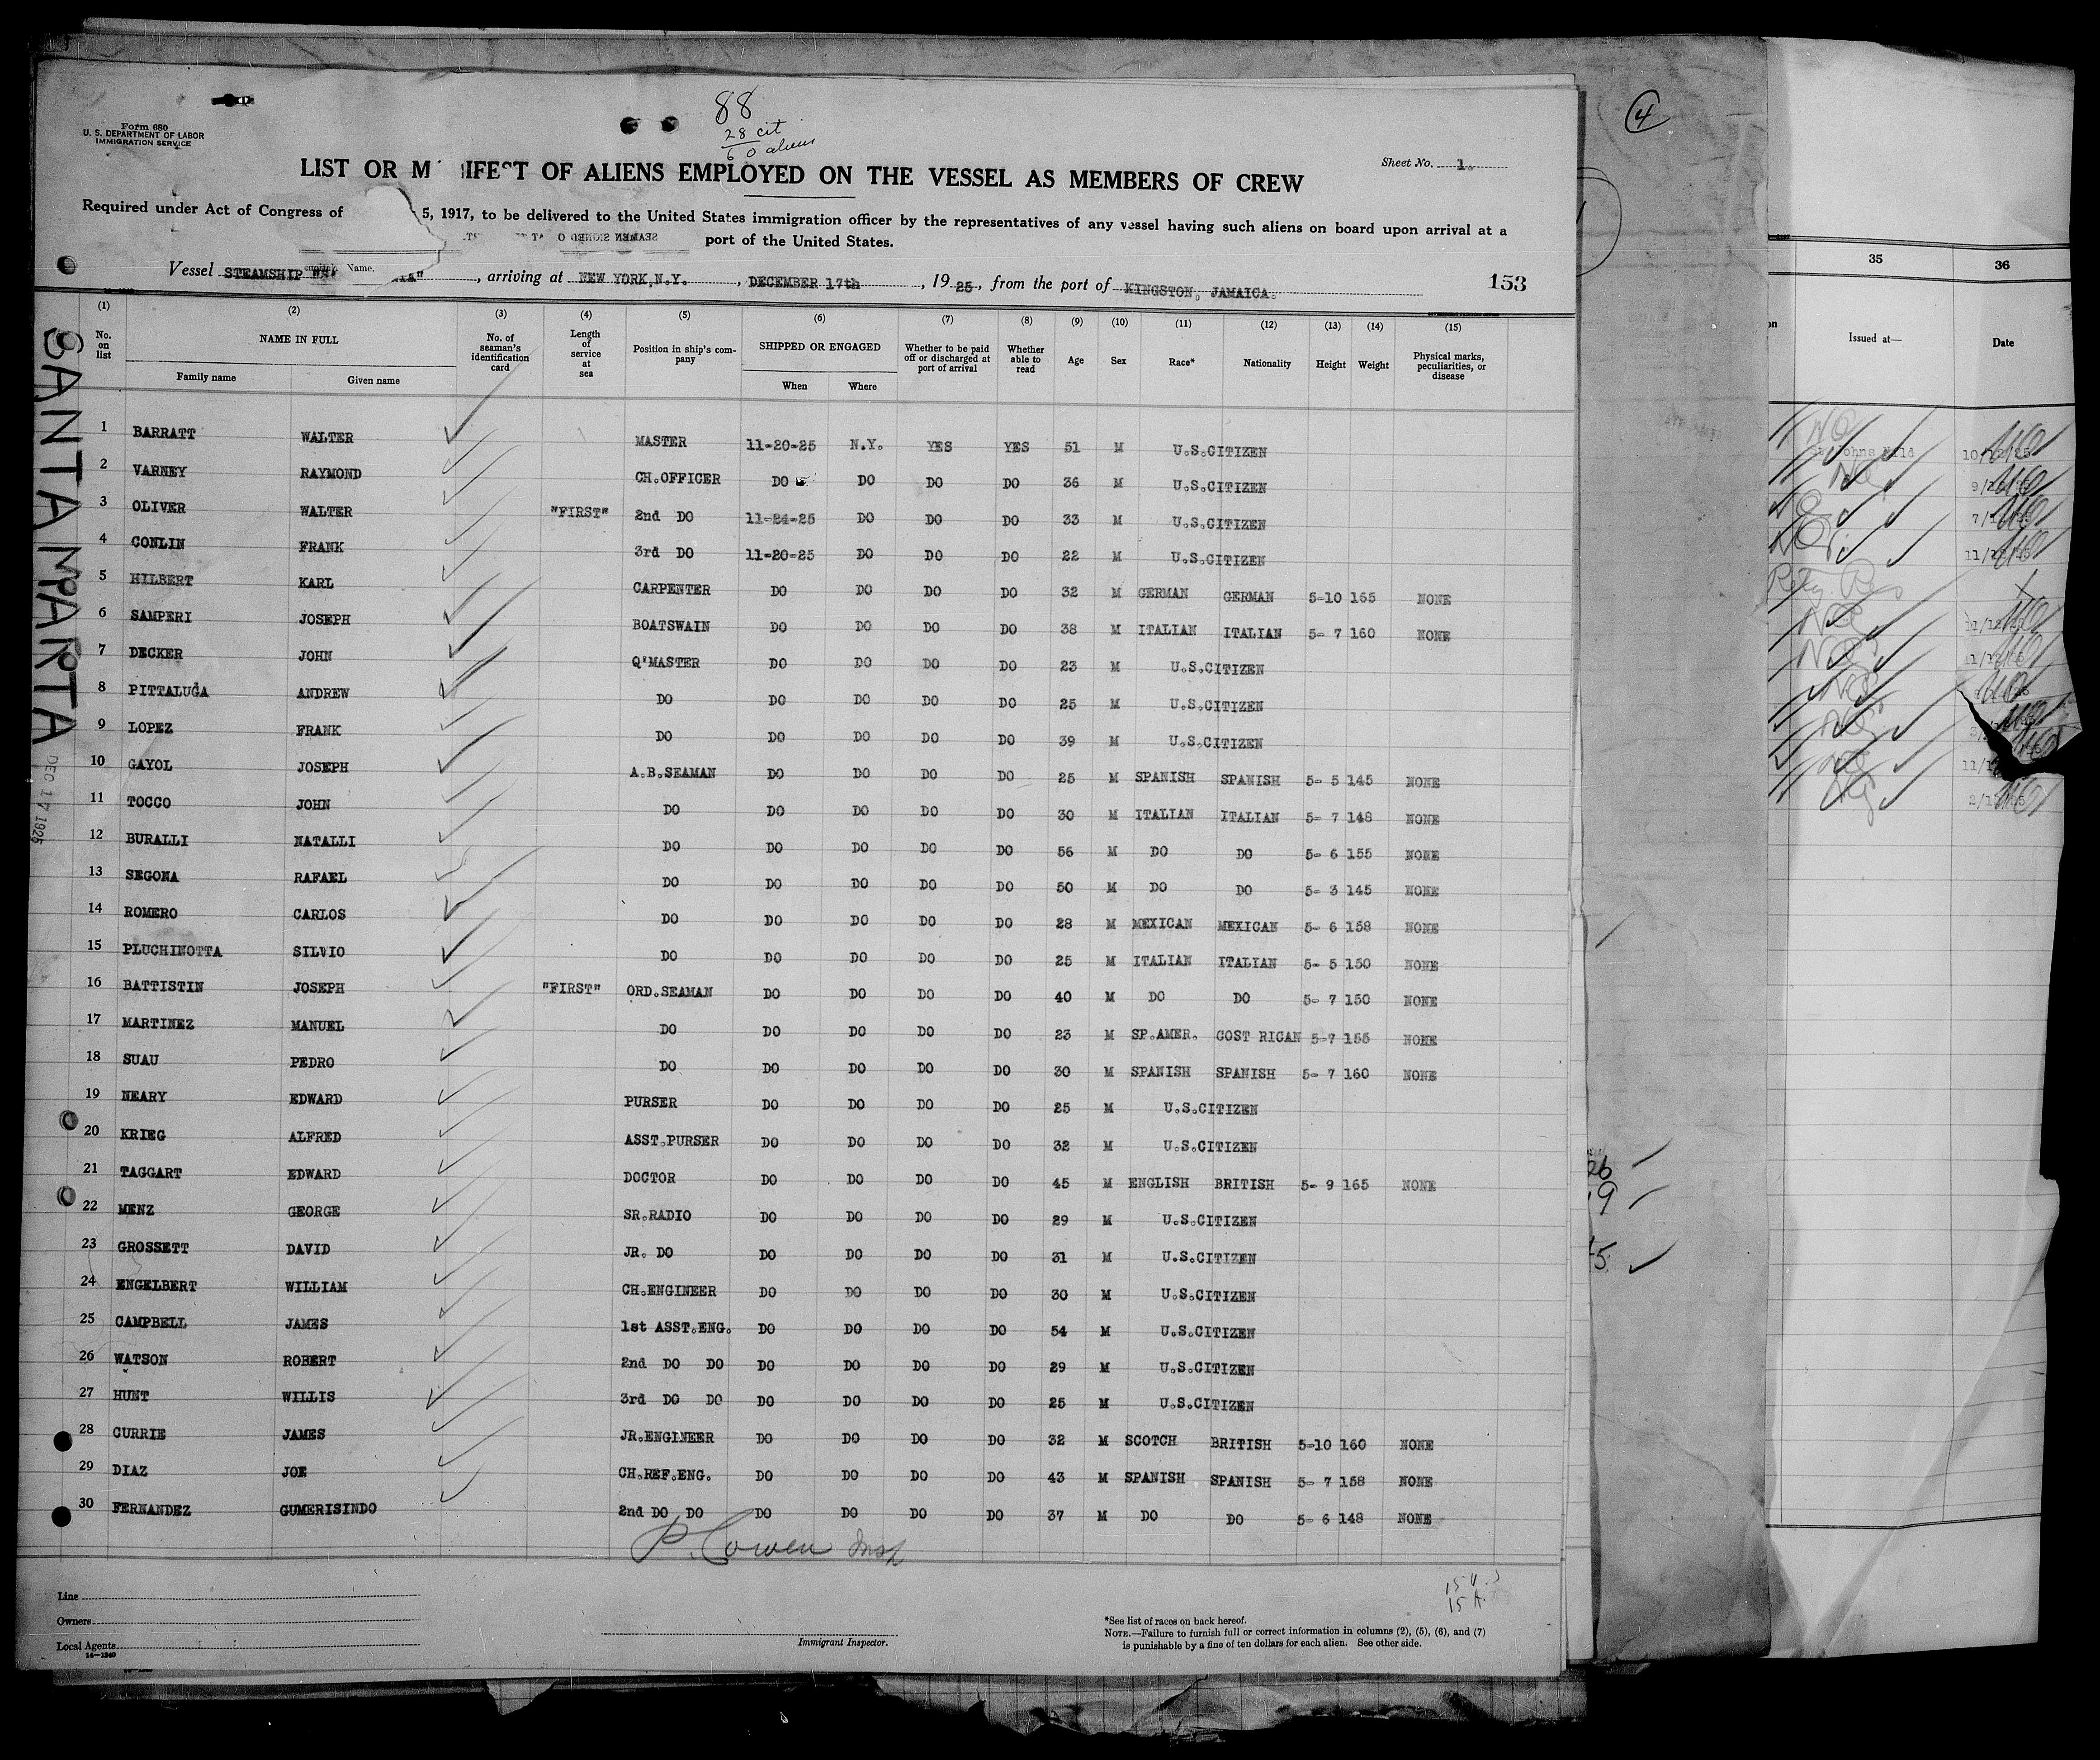 88
28 cit
60 aliens
4
Form 680
U. S. DEPARTMENT OF LABOR
IMMIGRATION SERVICE
Sheet No. 1.
LIST OR M IFEST OF ALIENS EMPLOYED ON THE VESSEL AS MEMBERS OF CREW
Required under Act of Congress of 5, 1917, to be delivered to the United States immigration officer by the representatives of any vessel having such aliens on board upon arrival at a
port of the United States.
Vessel STEAMSHIP , arriving at NEW YORK,N.Y. , DECEMBER 17th , 1925, from the port of KINGSTON, JAMAICA. 153
SANTA MARTA
DEC 17 1925
(1) (2) (3) (4) (5) (6) (7) (8) (9) (10) (11) (12) (13) (14) (15)
No. on list NAME IN FULL Family name Given name No. of seaman's identification card Length of service at sea Position in ship's company SHIPPED OR ENGAGED When Where Whether to be paid off or discharged at port of arrival Whether able to read Age Sex Race* Nationality Height Weight Physical marks, peculiarities, or disease
1 BARRATT WALTER MASTER 11-20-25 N.Y. YES YES 51 M U.S.CITIZEN
2 VARNEY RAYMOND CH.OFFICER DO DO DO DO 36 M U.S.CITIZEN
3 OLIVER WALTER "FIRST" 2nd DO 11-24-25 DO DO DO 33 M U.S.CITIZEN
4 CONLIN FRANK 3rd DO 11-20-25 DO DO DO 22 M U.S.CITIZEN
5 HILBERT KARL CARPENTER DO DO DO DO 32 M GERMAN GERMAN 5-10 165 NONE
6 SAMPERI JOSEPH BOATSWAIN DO DO DO DO 38 M ITALIAN ITALIAN 5- 7 160 NONE
7 DECKER JOHN Q'MASTER DO DO DO DO 23 M U.S.CITIZEN
8 PITTALUGA ANDREW DO DO DO DO DO 25 M U.S.CITIZEN
9 LOPEZ FRANK DO DO DO DO DO 39 M U.S.CITIZEN
10 GAYOL JOSEPH A.B.SEAMAN DO DO DO DO 25 M SPANISH SPANISH 5- 5 145 NONE
11 TOCCO JOHN DO DO DO DO DO 30 M ITALIAN ITALIAN 5- 7 148 NONE
12 BURALLI NATALLI DO DO DO DO DO 56 M DO DO 5- 6 155 NONE
13 SEGONA RAFAEL DO DO DO DO DO 50 M DO DO 5- 3 145 NONE
14 ROMERO CARLOS DO DO DO DO DO 28 M MEXICAN MEXICAN 5- 6 158 NONE
15 PLUCHINOTTA SILVIO DO DO DO DO DO 25 M ITALIAN ITALIAN 5- 5 150 NONE
16 BATTISTIN JOSEPH "FIRST" ORD.SEAMAN DO DO DO DO 40 M DO DO 5- 7 150 NONE
17 MARTINEZ MANUEL DO DO DO DO DO 23 M SP.AMER. COST RICAN 5-7 155 NONE
18 SUAU PEDRO DO DO DO DO DO 30 M SPANISH SPANISH 5- 7 160 NONE
19 NEARY EDWARD PURSER DO DO DO DO 25 M U.S.CITIZEN
20 KRIEG ALFRED ASST.PURSER DO DO DO DO 32 M U.S.CITIZEN
21 TAGGART EDWARD DOCTOR DO DO DO DO 45 M ENGLISH BRITISH 5- 9 165 NONE
22 MENZ GEORGE SR.RADIO DO DO DO DO 29 M U.S.CITIZEN
23 GROSSETT DAVID JR. DO DO DO DO DO 31 M U.S.CITIZEN
24 ENGELBERT WILLIAM CH.ENGINEER DO DO DO DO 30 M U.S.CITIZEN
25 CAMPBELL JAMES 1st ASST.ENG. DO DO DO DO 54 M U.S.CITIZEN
26 WATSON ROBERT 2nd DO DO DO DO DO DO 29 M U.S.CITIZEN
27 HUNT WILLIS 3rd DO DO DO DO DO DO 25 M U.S.CITIZEN
28 CURRIE JAMES JR.ENGINEER DO DO DO DO 32 M SCOTCH BRITISH 5-10 160 NONE
29 DIAZ JOE CH.REF.ENG. DO DO DO DO 43 M SPANISH SPANISH 5- 7 158 NONE
30 FERNANDEZ GUMERISINDO 2nd DO DO DO DO DO DO 37 M DO DO 5- 6 148 NONE
P. Cowen Insp
Line
Owners
Local Agents
14-1240
Immigrant Inspector.
15 A.
*See list of races on back hereof.
NOTE.—Failure to furnish full or correct information in columns (2), (5), (6), and (7)
is punishable by a fine of ten dollars for each alien. See other side.
35 36
Issued at— Date